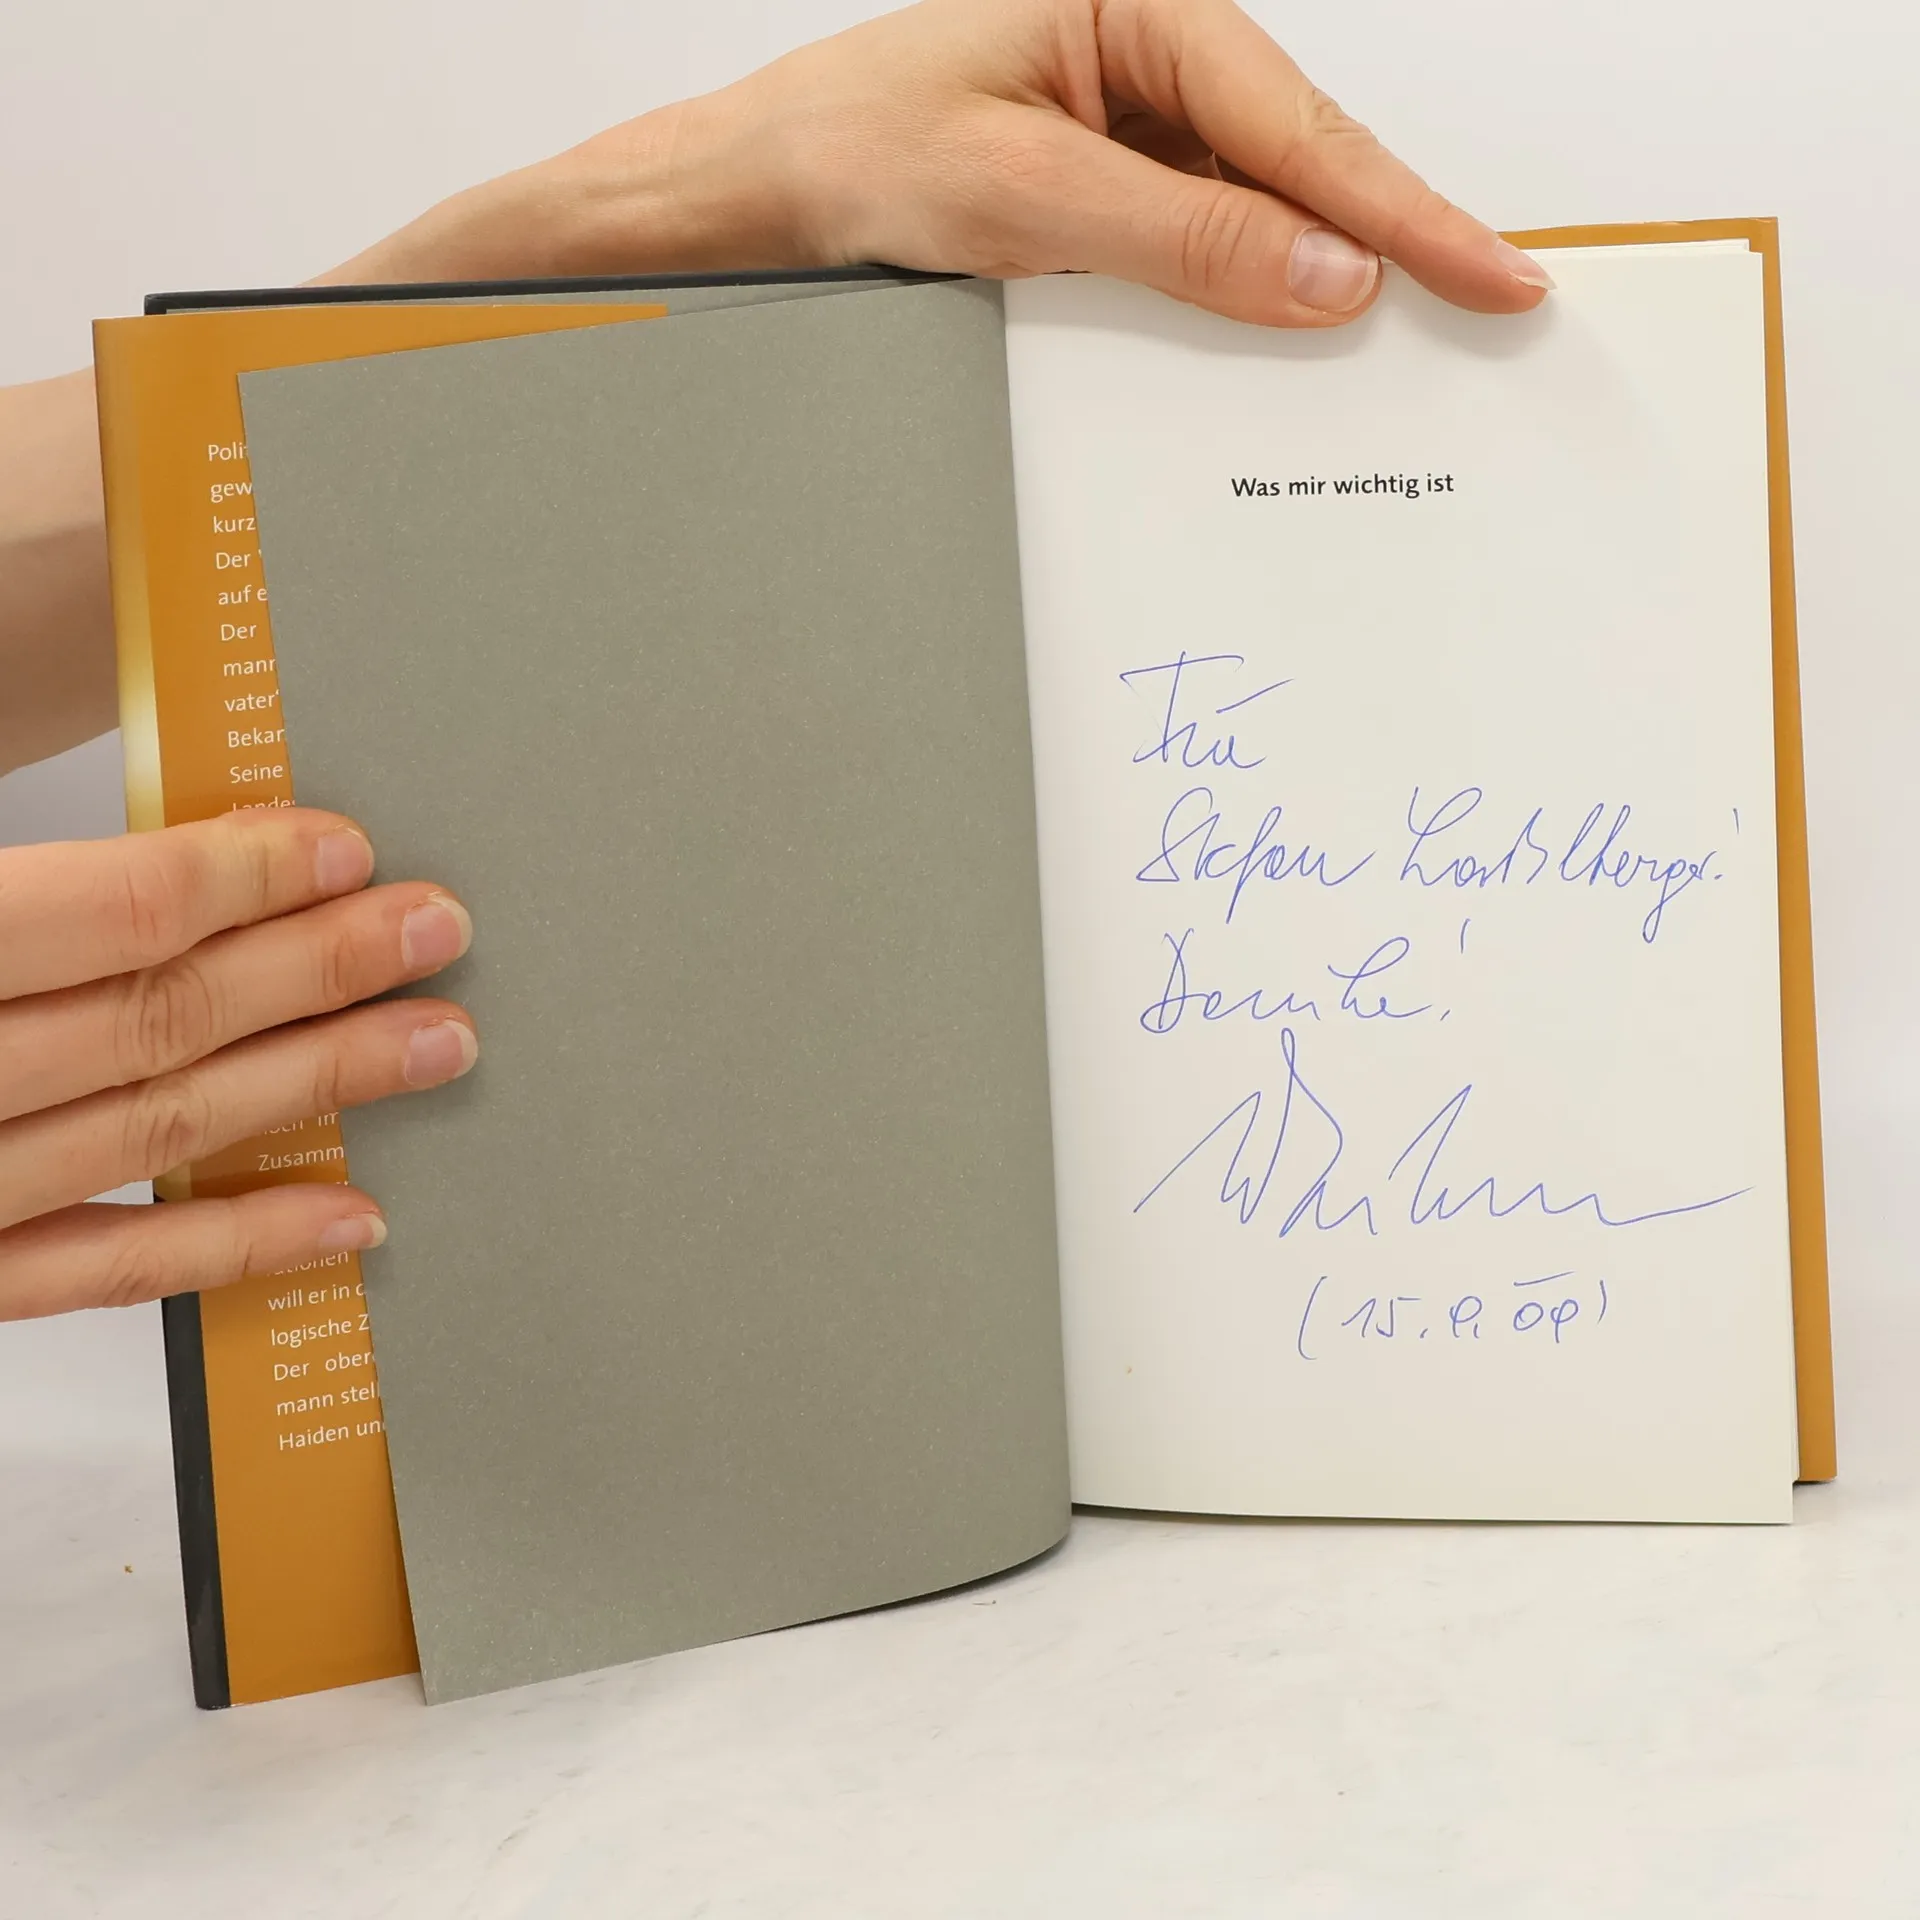 Poli
gew
kurz
Der
auf e
Der
mann
vater"
Bekan
Seine
Lande
noch im
Zusamm
rationen
will er in d
logische Z
Der ober
mann stel
Haiden und
Was mir wichtig ist
Für
Stefan
Danke!
(15. 9. 09)